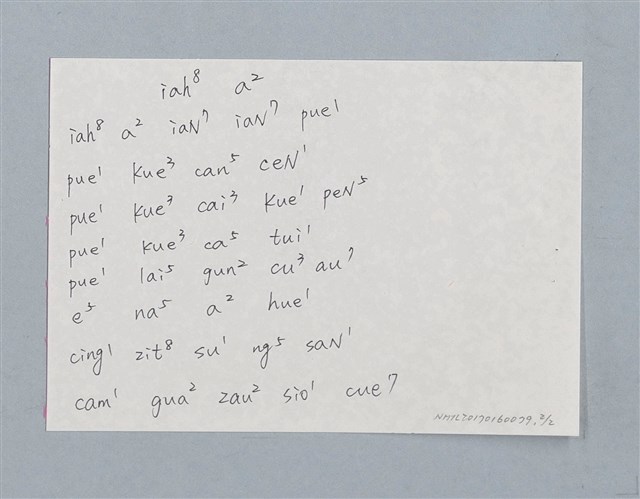 iah⁸ a²
iah⁸ a² iaN⁷ iaN⁷ pue¹
pue¹ kue³ can⁵ ceN¹
pue¹ kue³ cai³ kue¹ peN⁵
pue¹ kue³ ca⁵ tui¹
pue¹ lai⁵ gun² cu³ au⁷
e⁵ na⁵ a² hue¹
cing¹ zit⁸ su¹ ng⁵ saN¹
cam¹ gua² zau² sio¹ cue⁷
NMTL20170160079, 2/2